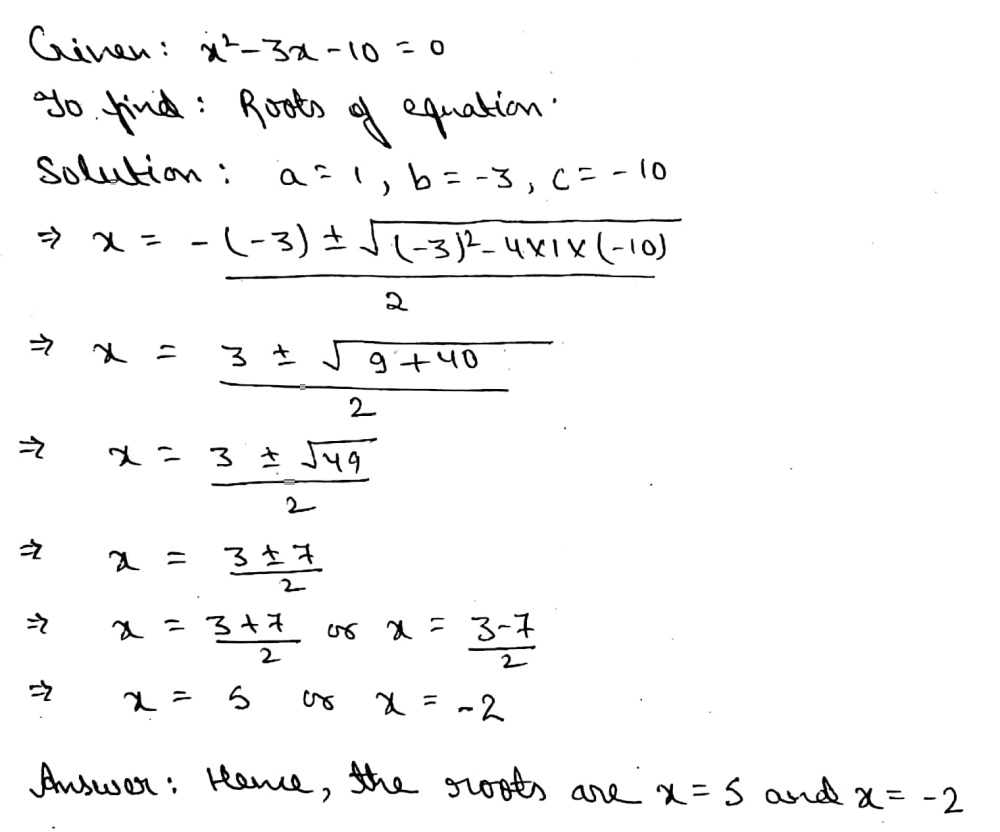 Given: x²-3x-10 = 0
To find: Roots of equation.
Solution: a = 1, b = -3, c = -10
⇒ x = -(-3) ± √(-3)²-4×1×(-10) / 2
⇒ x = 3 ± √9+40 / 2
⇒ x = 3 ± √49 / 2
⇒ x = 3±7 / 2
⇒ x = 3+7 / 2 or x = 3-7 / 2
⇒ x = 5 or x = -2
Answer: Hence, the roots are x=5 and x= -2